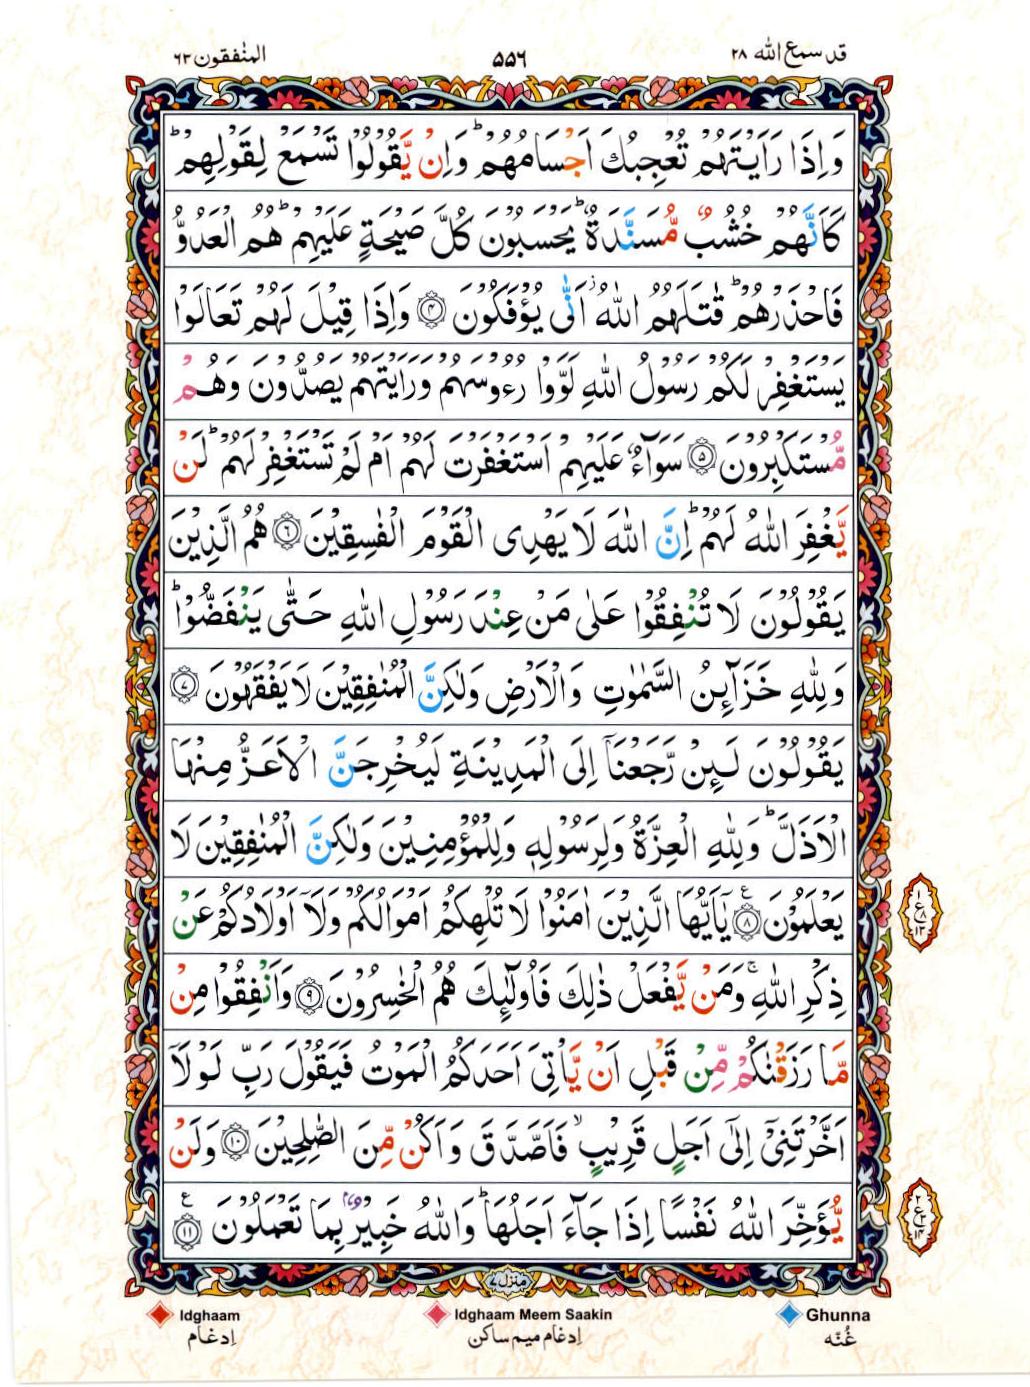 المنٰفقون ٦٣
۵۵٦
قد سمع الله ٢٨
وَاِذَا رَاَيْتَهُمْ تُعْجِبُكَ اَجْسَامُهُمْ ؕ وَاِنْ يَّقُوْلُوْا تَسْمَعْ لِقَوْلِهِمْ ؕ
كَاَنَّهُمْ خُشُبٌ مُّسَنَّدَةٌ ؕ يَحْسَبُوْنَ كُلَّ صَيْحَةٍ عَلَيْهِمْ ؕ هُمُ الْعَدُوُّ
فَاحْذَرْهُمْ ؕ قٰتَلَهُمُ اللّٰهُ ؗ اَنّٰى يُؤْفَكُوْنَ ﴿۴﴾ وَاِذَا قِيْلَ لَهُمْ تَعَالَوْا
يَسْتَغْفِرْ لَكُمْ رَسُوْلُ اللّٰهِ لَوَّوْا رُءُوْسَهُمْ وَرَاَيْتَهُمْ يَصُدُّوْنَ وَهُمْ
مُّسْتَكْبِرُوْنَ ﴿۵﴾ سَوَآءٌ عَلَيْهِمْ اَسْتَغْفَرْتَ لَهُمْ اَمْ لَمْ تَسْتَغْفِرْ لَهُمْ ؕ لَنْ
يَّغْفِرَ اللّٰهُ لَهُمْ ؕ اِنَّ اللّٰهَ لَا يَهْدِى الْقَوْمَ الْفٰسِقِيْنَ ﴿۶﴾ هُمُ الَّذِيْنَ
يَقُوْلُوْنَ لَا تُنْفِقُوْا عَلٰى مَنْ عِنْدَ رَسُوْلِ اللّٰهِ حَتّٰى يَنْفَضُّوْا ؕ
وَلِلّٰهِ خَزَآئِنُ السَّمٰوٰتِ وَالْاَرْضِ وَلٰكِنَّ الْمُنٰفِقِيْنَ لَا يَفْقَهُوْنَ ﴿۷﴾
يَقُوْلُوْنَ لَئِنْ رَّجَعْنَاۤ اِلَى الْمَدِيْنَةِ لَيُخْرِجَنَّ الْاَعَزُّ مِنْهَا
الْاَذَلَّ ؕ وَلِلّٰهِ الْعِزَّةُ وَلِرَسُوْلِهٖ وَلِلْمُؤْمِنِيْنَ وَلٰكِنَّ الْمُنٰفِقِيْنَ لَا
يَعْلَمُوْنَ ﴿۸﴾ ع يٰۤاَيُّهَا الَّذِيْنَ اٰمَنُوْا لَا تُلْهِكُمْ اَمْوَالُكُمْ وَلَاۤ اَوْلَادُكُمْ عَنْ
ذِكْرِ اللّٰهِ ۚ وَمَنْ يَّفْعَلْ ذٰلِكَ فَاُولٰٓئِكَ هُمُ الْخٰسِرُوْنَ ﴿۹﴾ وَاَنْفِقُوْا مِنْ
مَّا رَزَقْنٰكُمْ مِّنْ قَبْلِ اَنْ يَّاْتِىَ اَحَدَكُمُ الْمَوْتُ فَيَقُوْلَ رَبِّ لَوْ لَاۤ
اَخَّرْتَنِىْۤ اِلٰٓى اَجَلٍ قَرِيْبٍ ۙ فَاَصَّدَّقَ وَاَكُنْ مِّنَ الصّٰلِحِيْنَ ﴿۱۰﴾ وَلَنْ
يُّؤَخِّرَ اللّٰهُ نَفْسًا اِذَا جَآءَ اَجَلُهَا ؕ وَاللّٰهُ خَبِيْرٌۢ بِمَا تَعْمَلُوْنَ ﴿۱۱﴾ ع
منزل ٧
Idghaam
Idghaam Meem Saakin
Ghunna
اِدغام
اِدغام میم ساکن
غُنّه